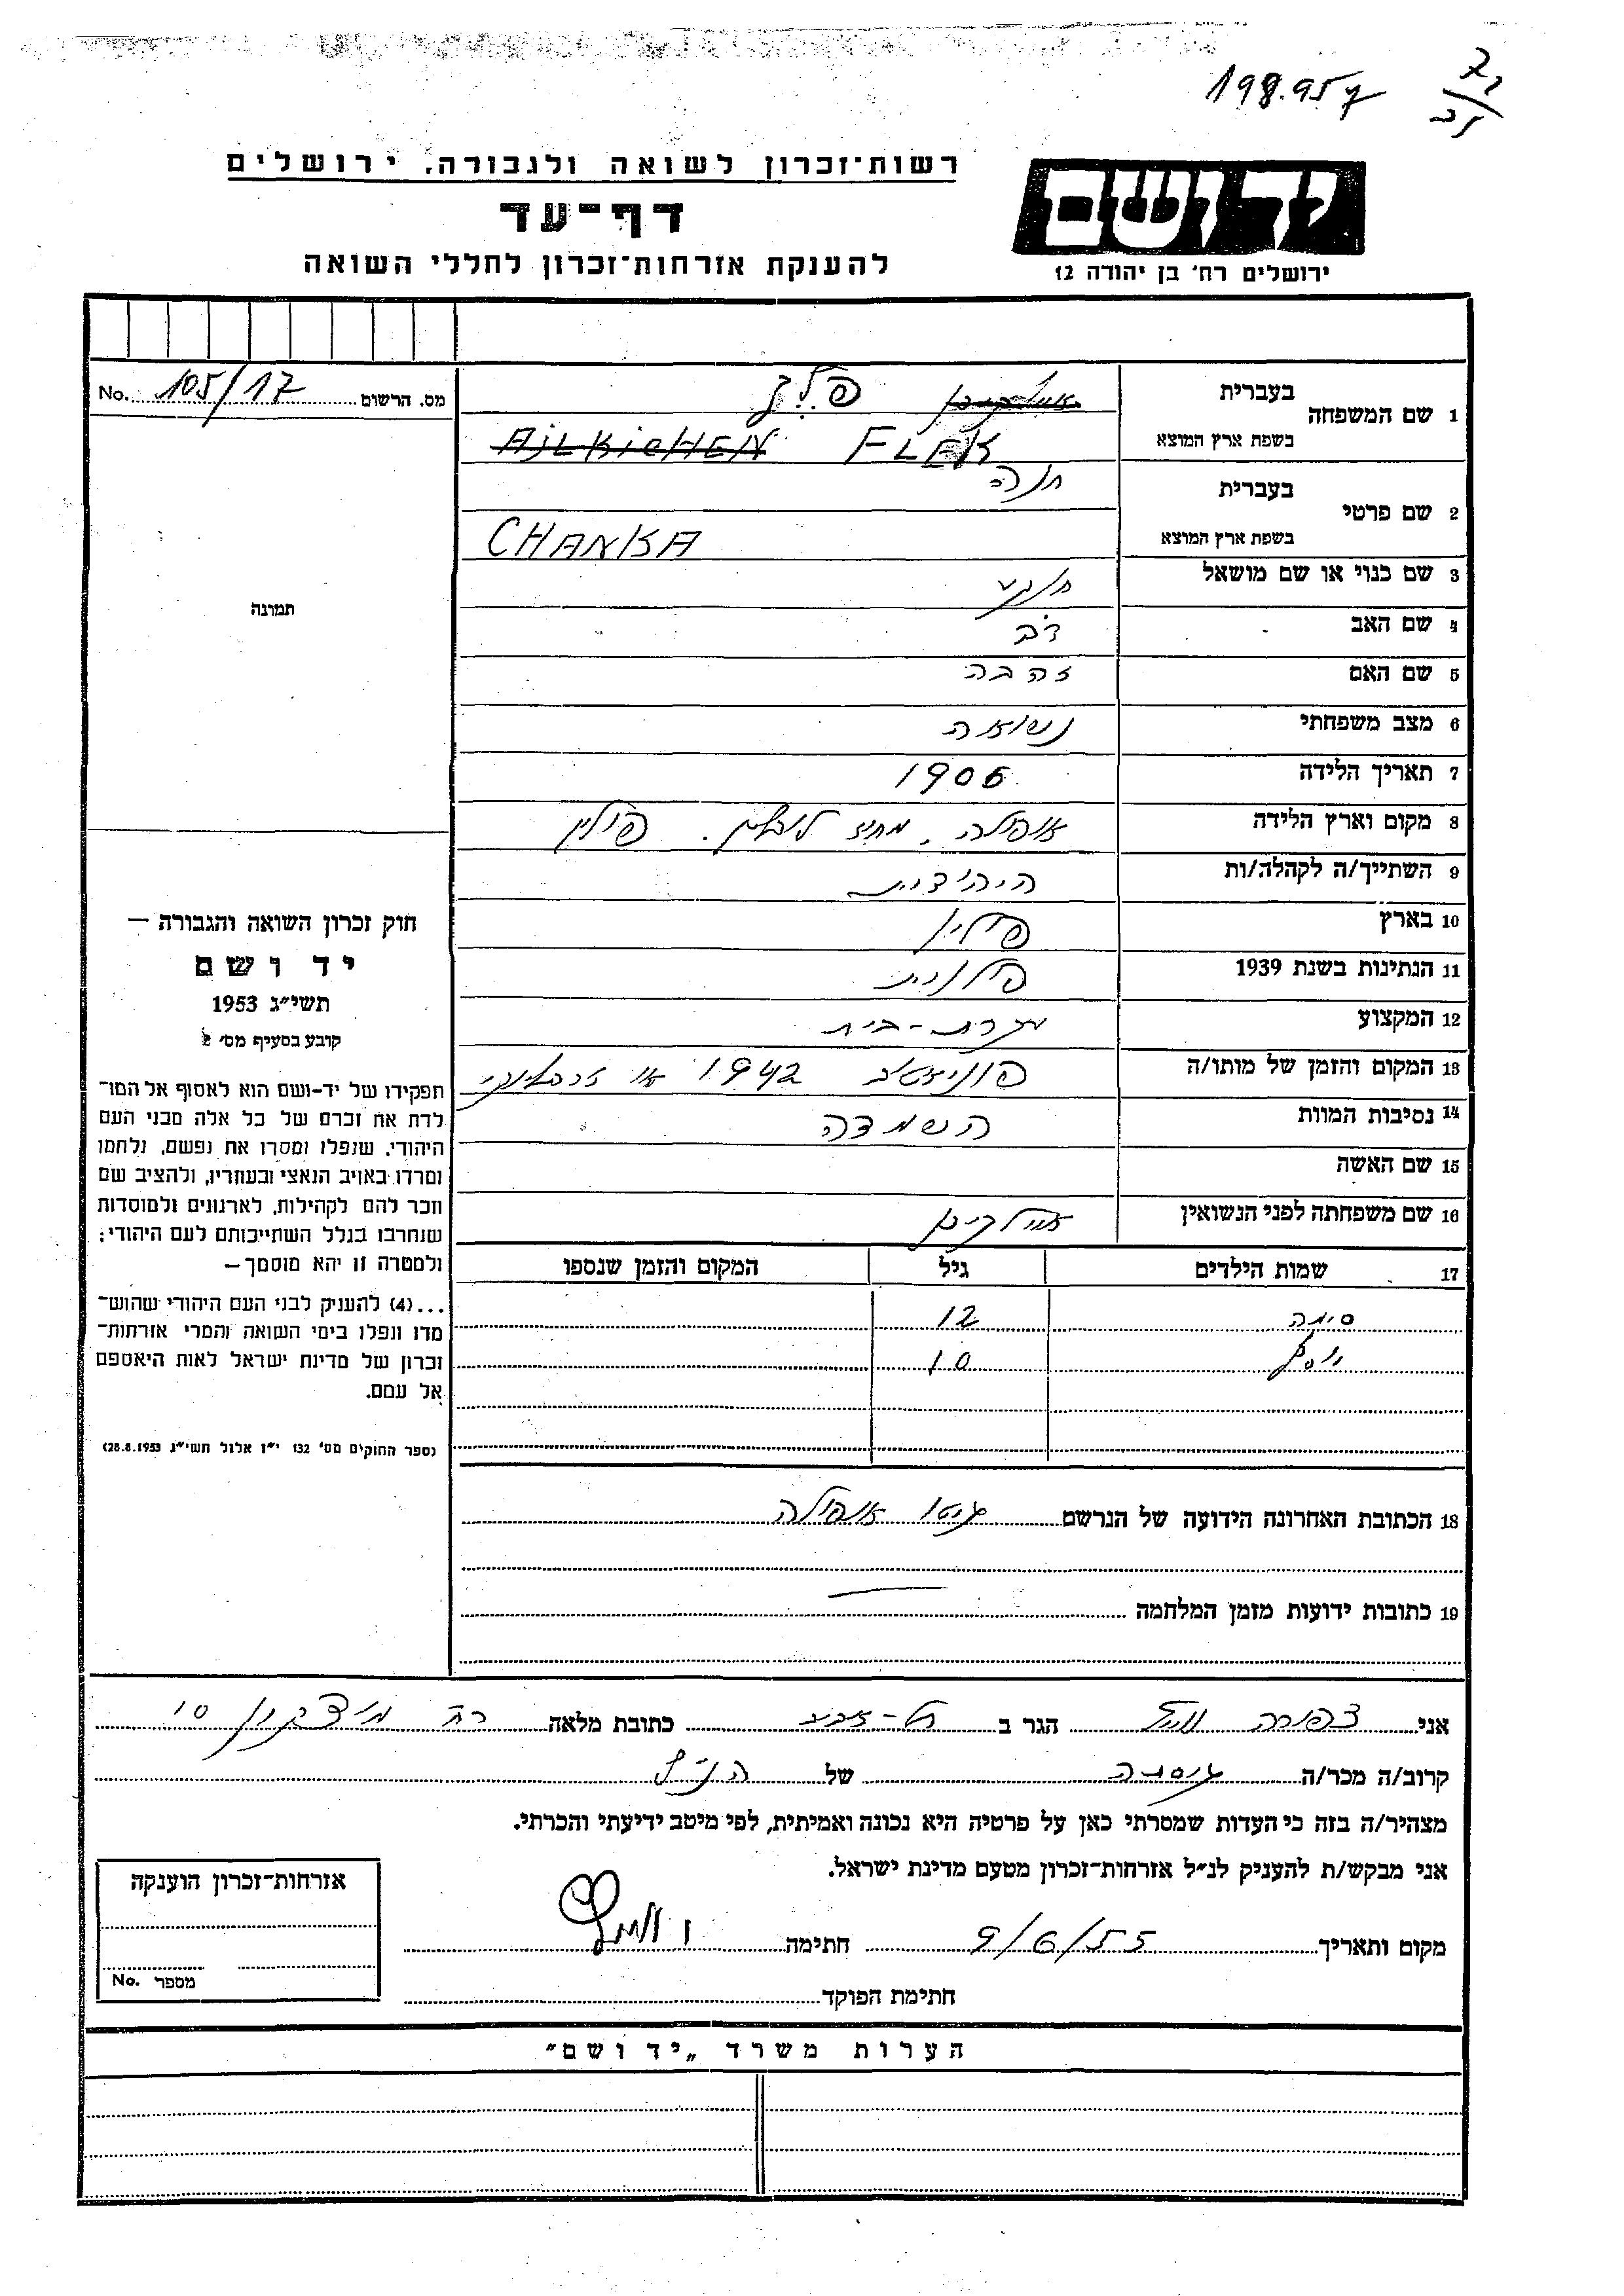 198.957
רשות־זכרון לשואה ולגבורה, ירושלים
דף־עד
להענקת אזרחות־זכרון לחללי השואה
יד ושם
ירושלים רח׳ בן יהודה 12
מס. הרשום 105/17 No.
1 שם המשפחה
בעברית פלק
בשפת ארץ המוצא AiLKiCHEN FLEK
2 שם פרטי
בעברית חנה
בשפת ארץ המוצא CHANKA
3 שם כנוי או שם מושאל חנקא
4 שם האב דב
5 שם האם זהבה
6 מצב משפחתי נשואה
7 תאריך הלידה 1906
8 מקום וארץ הלידה אופולה, מחוז לובלין. פולין
9 השתייך/ה לקהלה/ות היהודית
10 בארץ פולין
11 הנתינות בשנת 1939 פולנית
12 המקצוע עקרת-בית
13 המקום והזמן של מותו/ה 1942 או
14 נסיבות המוות השמדה
15 שם האשה
16 שם משפחתה לפני הנשואין
17 שמות הילדים גיל המקום והזמן שנספו
סימה 12
יוסף 10
תמונה
חוק זכרון השואה והגבורה —
יד ושם
תשי״ג 1953
קובע בסעיף מס׳ 2
תפקידו של יד-ושם הוא לאסוף אל המו־
לדת את זכרם של כל אלה מבני העם
היהודי, שנפלו ומסרו את נפשם, נלחמו
ומרדו באויב הנאצי ובעוזריו, ולהציב שם
וזכר להם לקהילות, לארגונים ולמוסדות
שנחרבו בגלל השתייכותם לעם היהודי;
ולמטרה זו יהא מוסמך—
...(4) להענק לבני העם היהודי שהוש־
מדו ונפלו בימי השואה והמרי אזרחות־
זכרון של מדינת ישראל לאות היאספם
אל עמם.
(ספר החוקים מס׳ 132 י״ז אלול תשי״ג 28.8.1953)
18 הכתובת האחרונה הידועה של הנרשם גיטו אופולה
19 כתובות ידועות מזמן המלחמה
אני צפורה הגר ב תל-אביב כתובת מלאה רח 10
קרוב/ה מכר/ה גיסתה של הנ״ל
מצהיר/ה בזה כי העדות שמסרתי כאן על פרטיה היא נכונה ואמיתית, לפי מיטב ידיעתי והכרתי.
אני מבקש/ת להעניק לנ״ל אזרחות־זכרון מטעם מדינת ישראל.
מקום ותאריך 9/6/55 חתימה
חתימת הפוקד
אזרחות־זכרון הוענקה
מספר No.
הערות משרד „יד ושם״